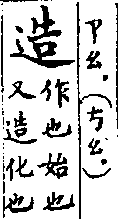 ㄗㄠ.(ㄘㄠ.)
造
作也始也
又造化也